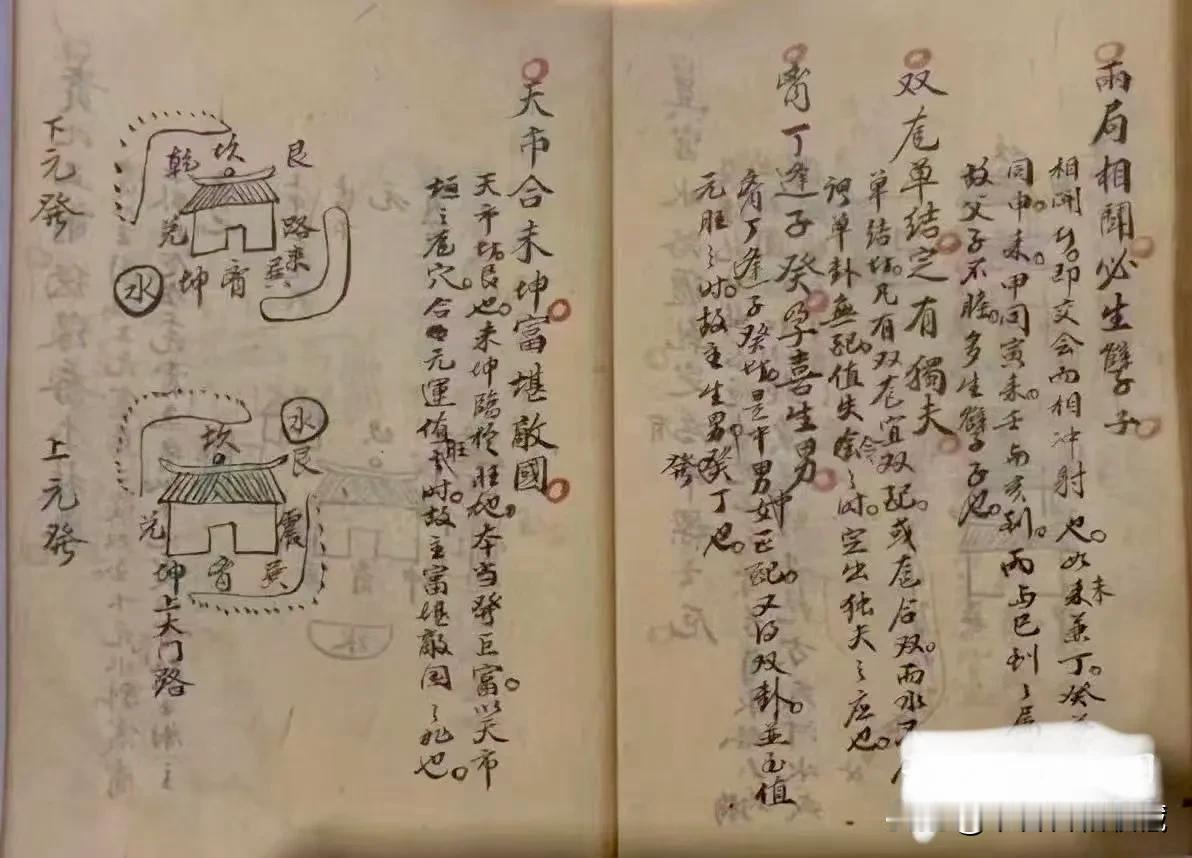 兩局相關必生孽子
相関者。即交会而相冲射也。如未兼丁。癸
同申未。甲同寅未。壬与亥到。丙与巳到之
故父子不睦。多生孽子也。
双龙单结定有獨夫
单结者。凡有双龙宜双配。或龙合双。而水
謂单卦無配。值失令之时。定出独夫之应也。
丁逢子癸孕喜生男
丁逢子癸者。是中男中女正配。又得双卦。並至值
元旺之时。故主生男癸丁也。
发
天市合未坤富堪敵國
天市者艮也。未坤臨於旺地。本当發巨富。以天市
垣之龙穴。合元運值旺之时。故主富堪敵国之兆也。
下元發
坎
乾
艮
兑
路
水
坤
上元發
坎
水
艮
兑
震
坤
巽
上大门路